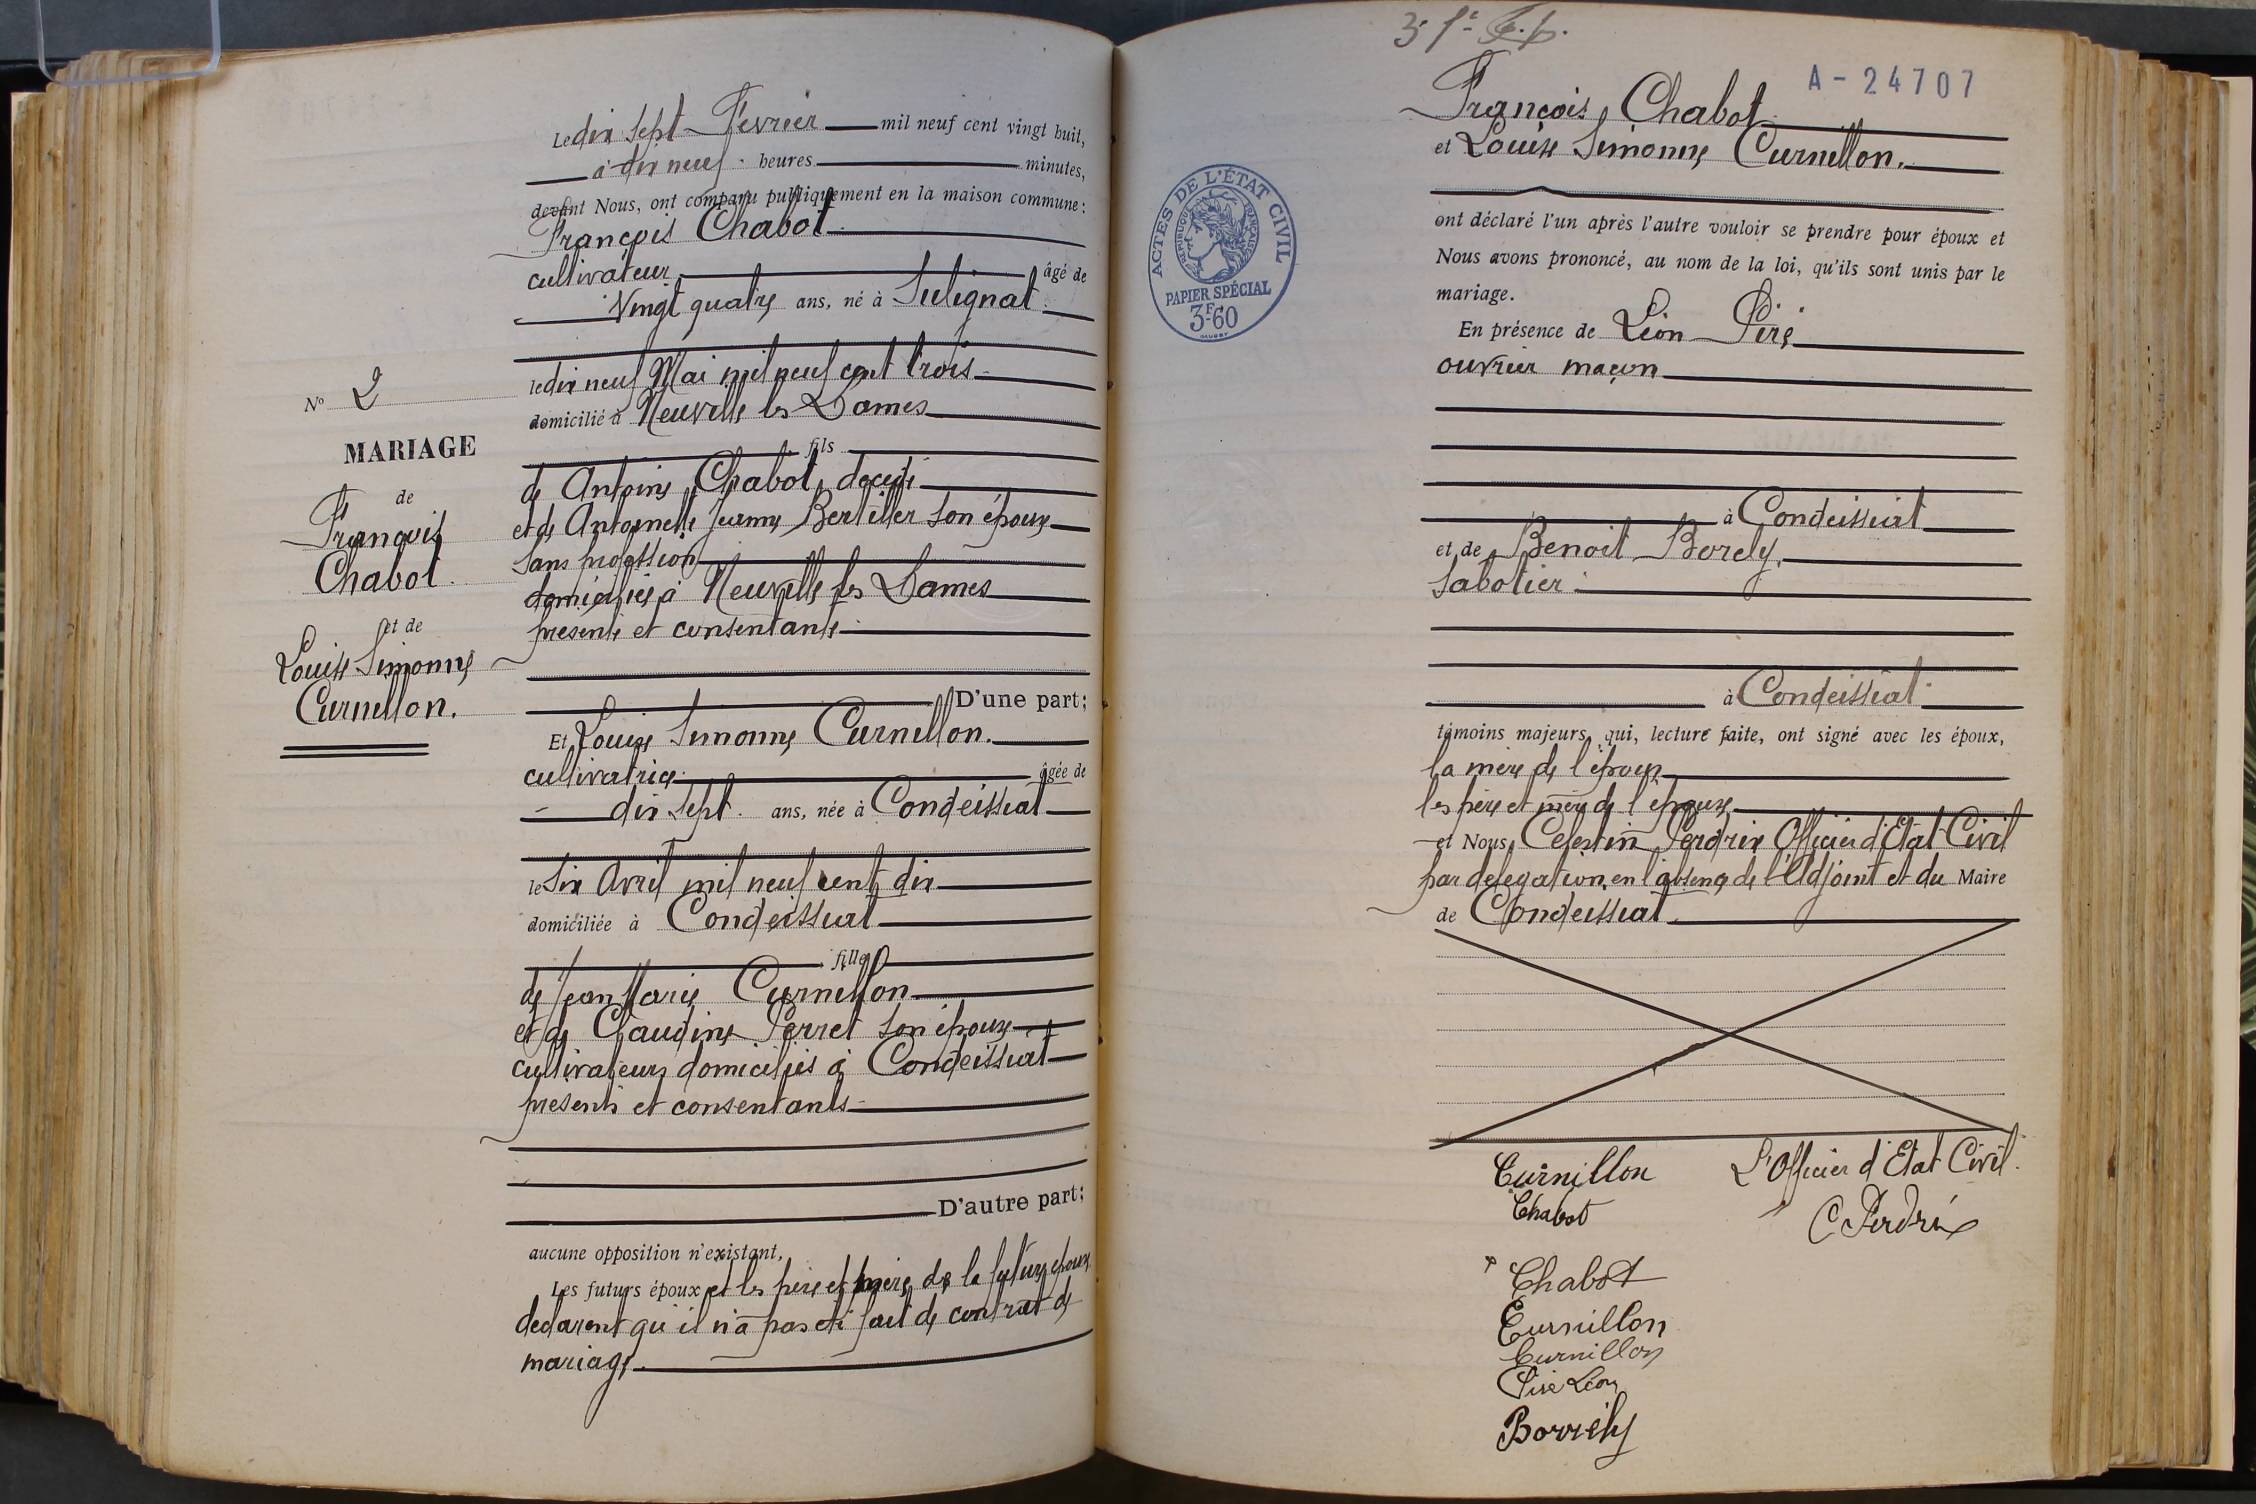 Le dix sept Février mil neuf cent vingt huit,
à dix neuf heures minutes,
devant Nous, ont comparu publiquement en la maison commune :
François Chabot
cultivateur âgé de
Vingt quatre ans, né à Sulignat
le dix neuf Mai mil neuf cent trois
domicilié à Neuville les Dames
fils
de Antoine Chabot, decedé
et de Antoinette Jeanne Bertiller son épouse
sans profession
domiciliée à Neuville les Dames
presente et consentante
D'une part ;
Et Louise Simonne Curnillon.
cultivatrice âgée de
dix sept ans, née à Condeissiat
le Six Avril mil neuf cent dix
domiciliée à Condeissiat
fille
de Jean Marie Curnillon
et de Claudine Perret son épouse
cultivateurs domiciliés à Condeissiat
presents et consentants
D'autre part ;
aucune opposition n'existant,
Les futurs époux et les père et mère de la future épouse
declarent qu'il n'a pas été fait de contrat de
mariage.
N° 2
MARIAGE
de
François
Chabot.
et de
Louise Simonne
Curnillon.
A - 24707
François Chabot
et Louise Simonne Curnillon.
ACTES DE L'ÉTAT CIVIL
RÉPUBLIQUE FRANÇAISE
PAPIER SPÉCIAL
3F60
ont déclaré l'un après l'autre vouloir se prendre pour époux et
Nous avons prononcé, au nom de la loi, qu'ils sont unis par le
mariage.
En présence de Léon Piré
ouvrier maçon
à Condeissiat
et de Benoit Borely,
Sabotier
à Condeissiat
témoins majeurs, qui, lecture faite, ont signé avec les époux,
la mère de l'époux
les père et mère de l'épouse
et Nous, Celestin Perdrix Officier d'Etat Civil
par delegation, en l'absence de l'Adjoint et du Maire
de Condeissiat.
Curnillon L'Officier d'Etat Civil.
Chabot C Perdrix
Chabot
Curnillon
Curnillon
Piré Léon
Borrély